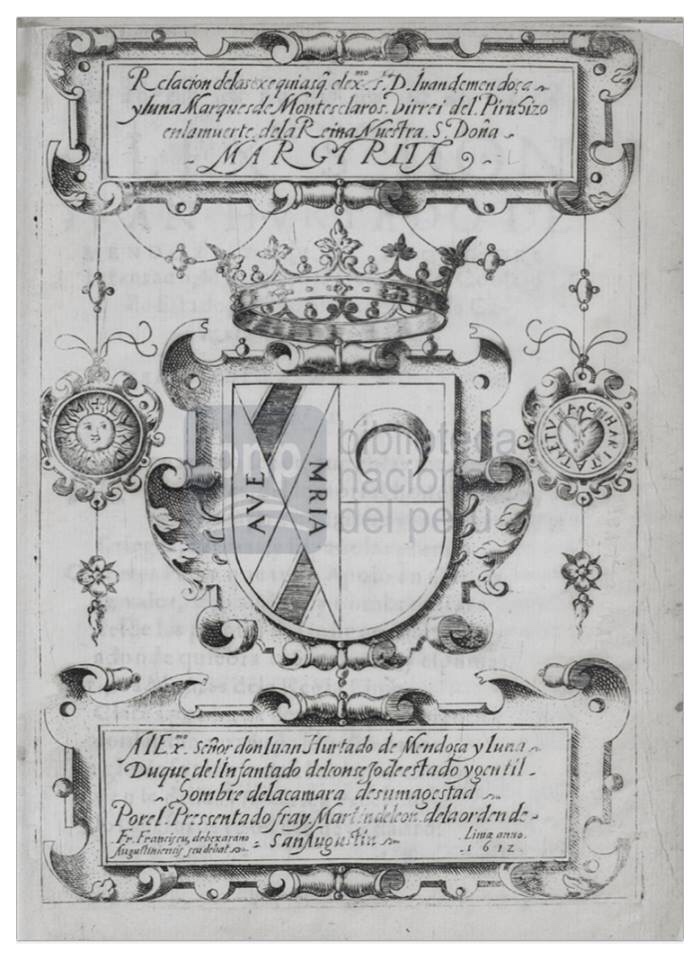 Relacion delas exequias q̃ el exᵐᵒ s.ᵒʳ D. Iuan de mendoça
y luna Marques de Montesclaros. Virrei del Piru hizo
en la muerte de la Reina Nuestra. Sᵃ Doña
MARGYRITA
AVE
MRIA
Al Exᵐᵒ. Señor don Iuan Hurtado de Mendoça y luna
Duque del Infantado del consejo de estado y gentil
hombre de la camara de su magestad
Por el Pressentado fray Martin de leon. de la orden de
San Augustin
Fr. Francisçu, de bexarano
Augustinensis
Lima anno.
1612
bnp
biblioteca
nacional
del perú